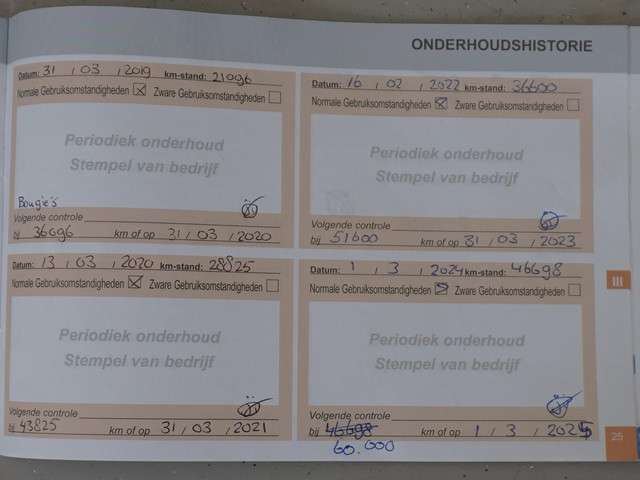 ONDERHOUDSHISTORIE
Datum: 31 / 03 / 2019 km-stand: 21096
Normale Gebruiksomstandigheden ☒ Zware Gebruiksomstandigheden ☐
Periodiek onderhoud
Stempel van bedrijf
Bougie's
Volgende controle
bij 36096 km of op 31 / 03 / 2020
Datum: 13 / 03 / 2020 km-stand: 28825
Normale Gebruiksomstandigheden ☒ Zware Gebruiksomstandigheden ☐
Periodiek onderhoud
Stempel van bedrijf
Volgende controle
bij 43825 km of op 31 / 03 / 2021
Datum: 16 / 02 / 2022 km-stand: 36600
Normale Gebruiksomstandigheden ☒ Zware Gebruiksomstandigheden ☐
Periodiek onderhoud
Stempel van bedrijf
Volgende controle
bij 51600 km of op 31 / 03 / 2023
Datum: 1 / 3 / 2024 km-stand: 46698
Normale Gebruiksomstandigheden ☒ Zware Gebruiksomstandigheden ☐
Periodiek onderhoud
Stempel van bedrijf
Volgende controle
bij 46698 km of op 1 / 3 / 2025
60.000
III
25